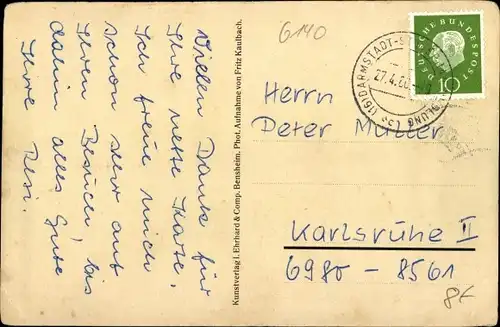 Vielen Dank für
Ihre nette Karte.
Ich freue mich
schon sehr auf
Ihren Besuch, bis
dahin alles Gute
Ihre Resi.
Kunstverlag I. Ehrhard & Comp. Bensheim. Phot. Aufnahme von Fritz Kaulbach.
6140
(16) DARMSTADT-
27.4.60
DEUTSCHE BUNDESPOST
10
Herrn
Peter Müller
Karlsruhe II
6980 - 8561
8£